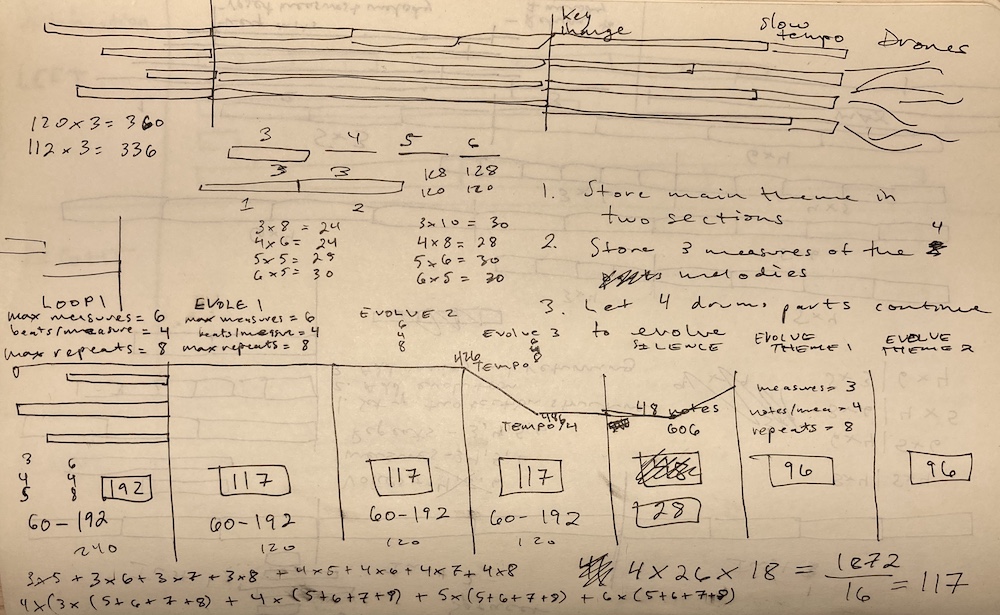 Key
change
slow
tempo
Drones
120 x 3 = 360
112 x 3 = 336
3 4 5 6
3 3 128 128
120 120
1 2
3x8 = 24
4x6 = 24
5x5 = 25
6x5 = 30
3x10 = 30
4x8 = 28
5x6 = 30
6x5 = 30
1. Store main theme in
two sections
2. Store 3 measures of the 4
melodies
3. Let 4 drum parts continue
to evolve
LOOP 1
max measures = 6
beats/measure = 4
max repeats = 8
EVOLE 1
max measures = 6
beats/measur = 4
max repeats = 8
EVOLVE 2
6
4
8
Evolve 3
6
8
SILENCE
EVOLVE
THEME 1
EVOLVE
THEME 2
426
TEMPO
486
TEMPO/4
48 notes
606
measures = 3
notes/mea = 4
repeats = 8
3 6
4 4
5 8
192
117
117
117
128
96
96
60-192
60-192
60-192
60-192
240
120
120
120
3x5 + 3x6 + 3x7 + 3x8 + 4x5 + 4x6 + 4x7 + 4x8
4x(3x(5+6+7+8) + 4x(5+6+7+8) + 5x(5+6+7+8) + 6x(5+6+7+8)
4 x 26 x 18 = 1872
16
= 117